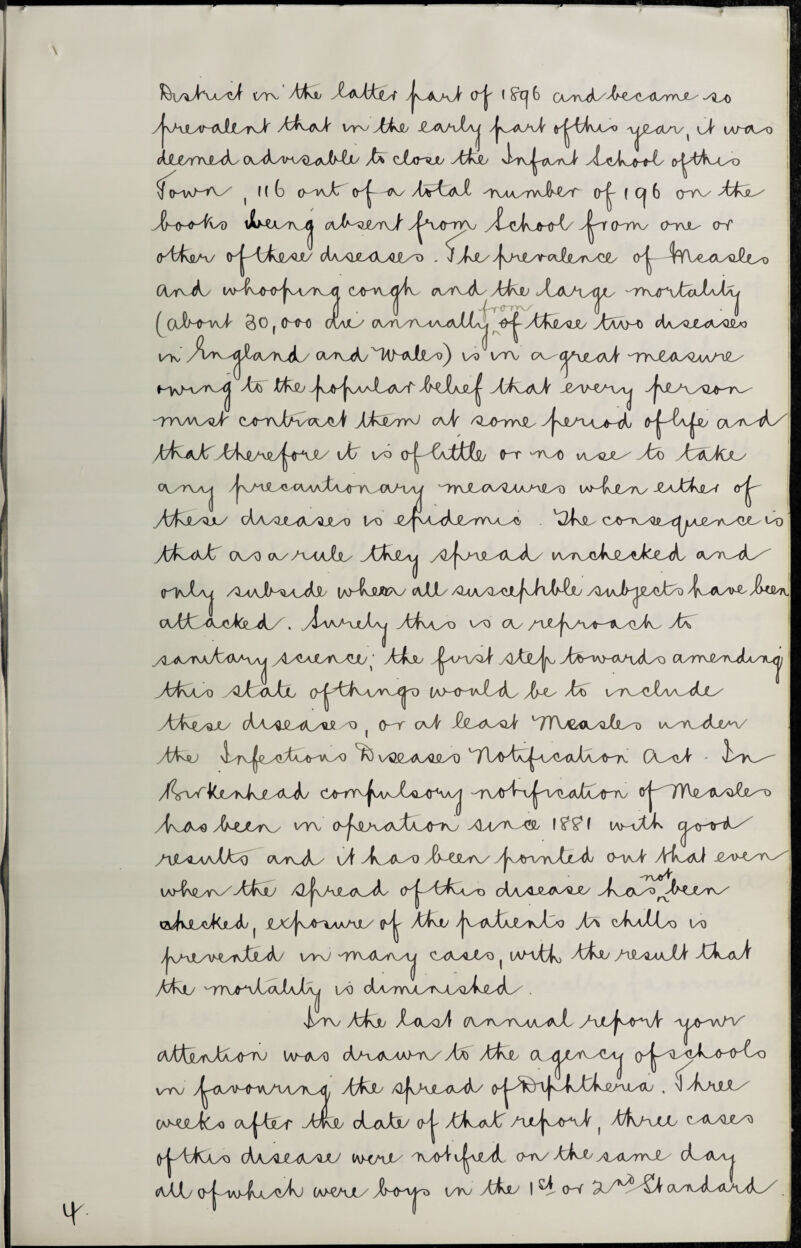 District in the latter part of 1896 and became so
prevalent that in the early part of this year, it was
deemed advisable to close the Infant School of this
Town, 116 out of a total number of 196 on the
books being absent from School from one or
other of these diseases. The prevalence of Measles
and whooping cough and the large mortality
(about 30,000 die annually from of these two diseases
in England and Wales) is in a great measure
owing to the popular belief that every person
must contract them at some period of life and
that therefore it is of little or no use to take
any precautionary measures when either of
these diseases is epidemic. The consequence is
that as a rule they spread unchecked and
only subside when all susceptible subjects have been
attacked. Surely this is a reproach to
sanitary science; the first step towards amending
this state of things would be to include
these diseases, or at least Measles under
the Infectious Diseases Notification Act. In
Birkenhead compulsory notification of Measles
has been in operation since 1881 with good
results and it has been pointed out that even
when the spread of this disease has not been
checked, exposure of the patients to chills is
prevented in many cases, with the result that
the mortality is diminished.
In the last annual report your
attention was drawn to the agency of schools
in favouring the spread of Diphtheria. Three
weeks after the date of that report, three cases
of this disease were notified on the same day
all of which were boys in the 1st or 2nd Standard
4.